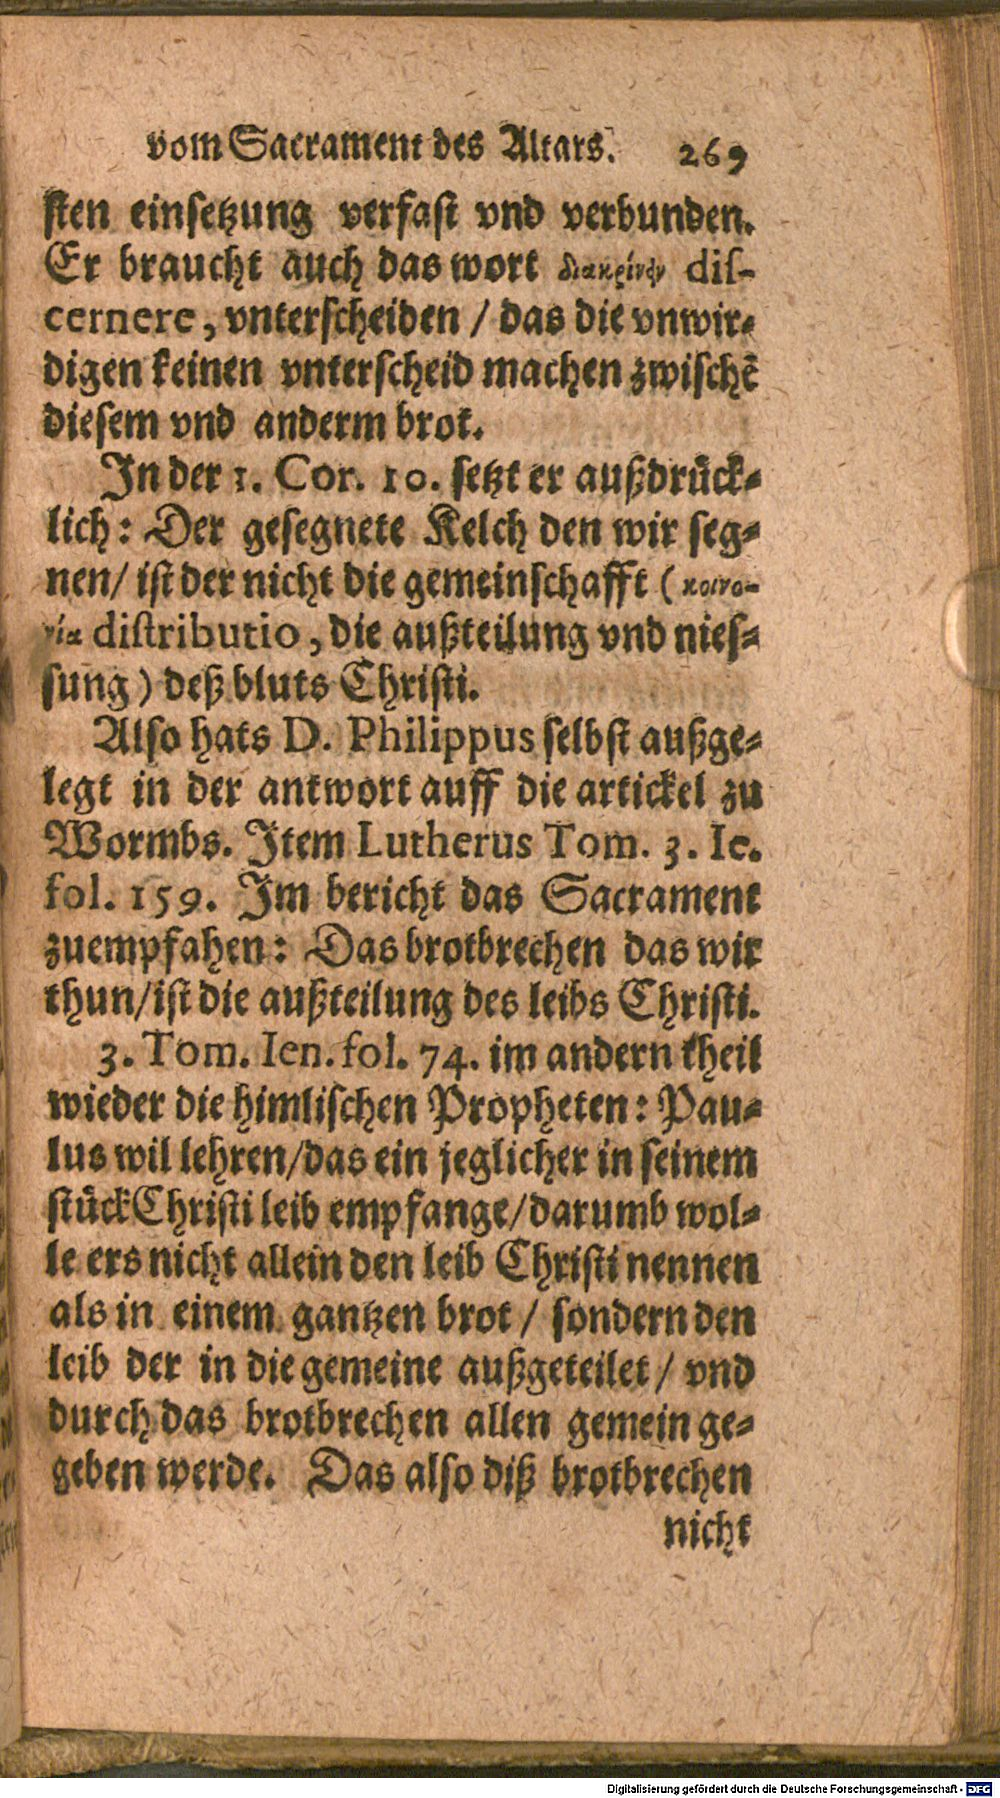 vom Sacrament des Altars. 269
sten einsetzung verfast vnd verbunden.
Er braucht auch das wort διακρίνειν dis-
cernere, vnterscheiden / das die vnwir-
digen keinen vnterscheid machen zwischē
diesem vnd anderm brot.
In der 1. Cor. 10. setzt er außdrück-
lich: Der gesegnete Kelch den wir seg-
nen/ ist der nicht die gemeinschafft (κοινο-
νία distributio, die außteilung vnd nies-
sung) deß bluts Christi.
Also hats D. Philippus selbst außge-
legt in der antwort auff die artickel zu
Wormbs. Item Lutherus Tom. 3. Ie.
fol. 159. Im bericht das Sacrament
zuempfahen: Das brotbrechen das wir
thun/ist die außteilung des leibs Christi.
3. Tom. Ien. fol. 74. im andern theil
wieder die himlischen Propheten: Pau-
lus wil lehren/das ein jeglicher in seinem
stück Christi leib empfange/darumb wol-
le ers nicht allein den leib Christi nennen
als in einem gantzen brot / sondern den
leib der in die gemeine außgeteilet / vnd
durch das brotbrechen allen gemein ge-
geben werde. Das also diß brotbrechen
nicht
Digitalisierung gefördert durch die Deutsche Forschungsgemeinschaft - DFG